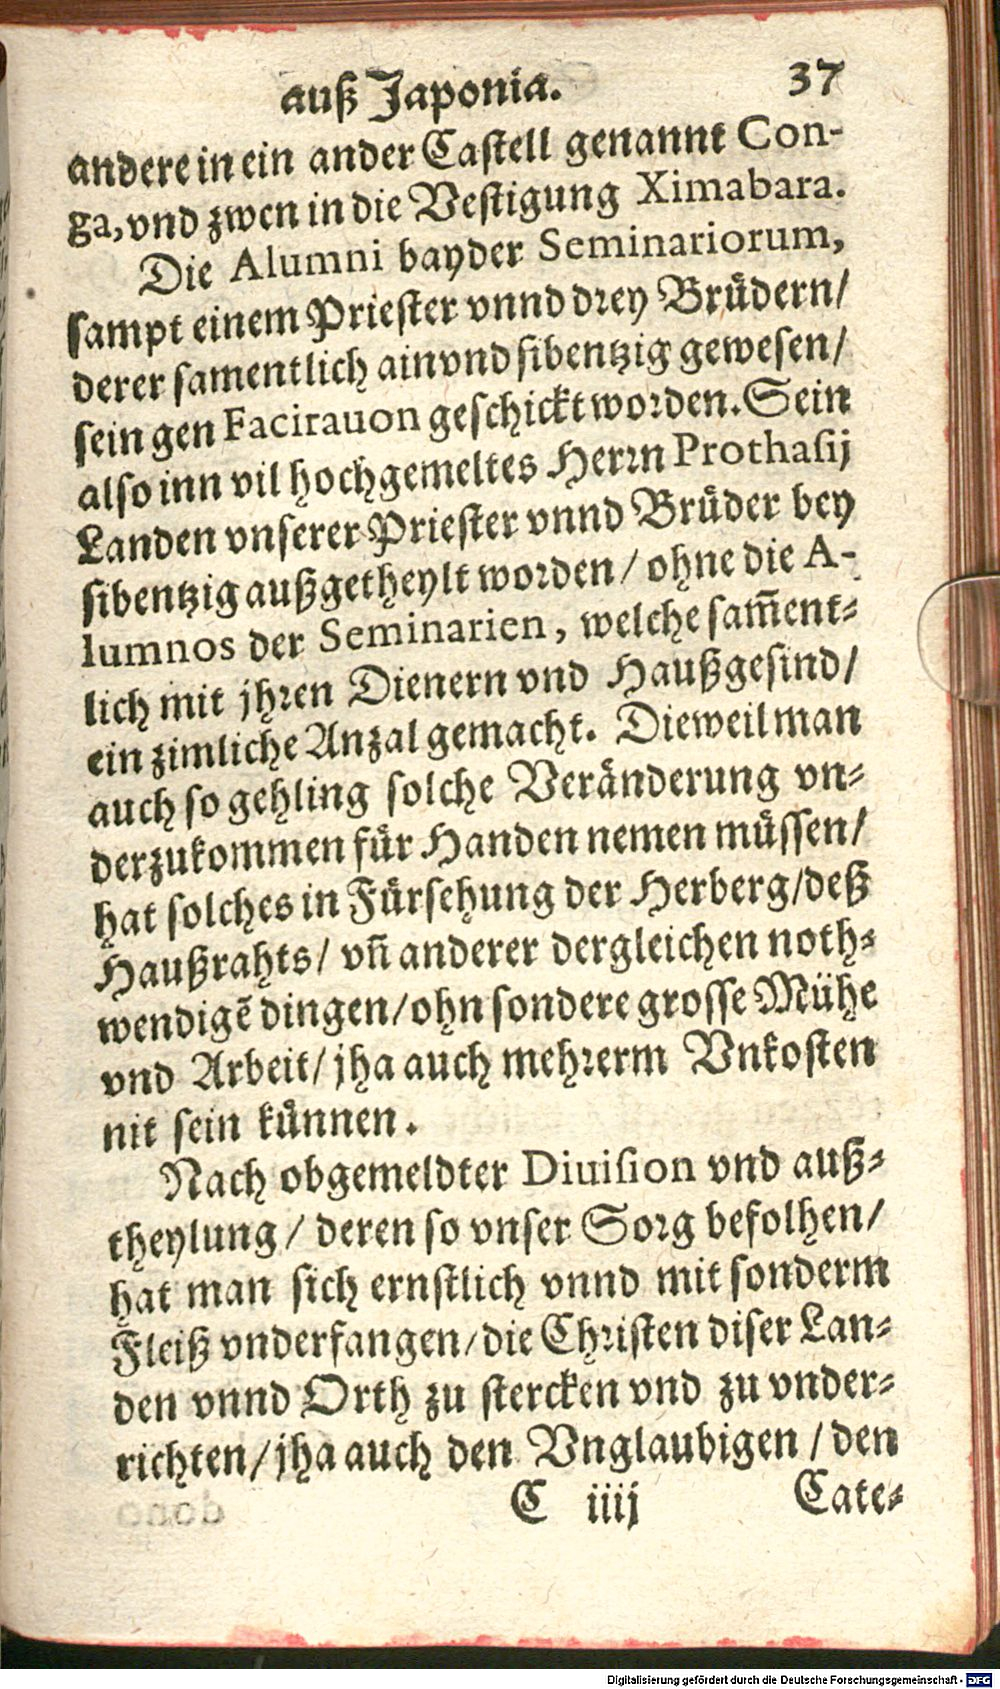 auß Japonia. 37
andere in ein ander Castell genannt Con-
ga, vnd zwen in die Vestigung Ximabara.
Die Alumni bayder Seminariorum,
sampt einem Priester vnnd drey Brüdern/
derer samentlich ain vnd sibentzig gewesen/
sein gen Facirauon geschickt worden. Sein
also inn vil hochgemeltes Herrn Prothasij
Landen vnserer Priester vnnd Brüder bey
sibentzig außgetheylt worden / ohne die A-
lumnos der Seminarien, welche sam̃ent-
lich mit jhren Dienern vnd Haußgesind/
ein zimliche Anzal gemacht. Dieweil man
auch so gehling solche Veränderung vn-
derzukommen für Handen nemen müssen/
hat solches in Fürsehung der Herberg/deß
Haußrahts/ vñ anderer dergleichen noth-
wendigẽ dingen/ohn sondere grosse Mühe
vnd Arbeit/ jha auch mehrerm Vnkosten
nit sein künnen.
Nach obgemeldter Diuision vnd auß-
theylung/ deren so vnser Sorg befolhen/
hat man sich ernstlich vnnd mit sonderm
Fleiß vnderfangen/die Christen diser Lan-
den vnnd Orth zu stercken vnd zu vnder-
richten/jha auch den Vnglaubigen / den
C iiij Cate-
Digitalisierung gefördert durch die Deutsche Forschungsgemeinschaft - DFG